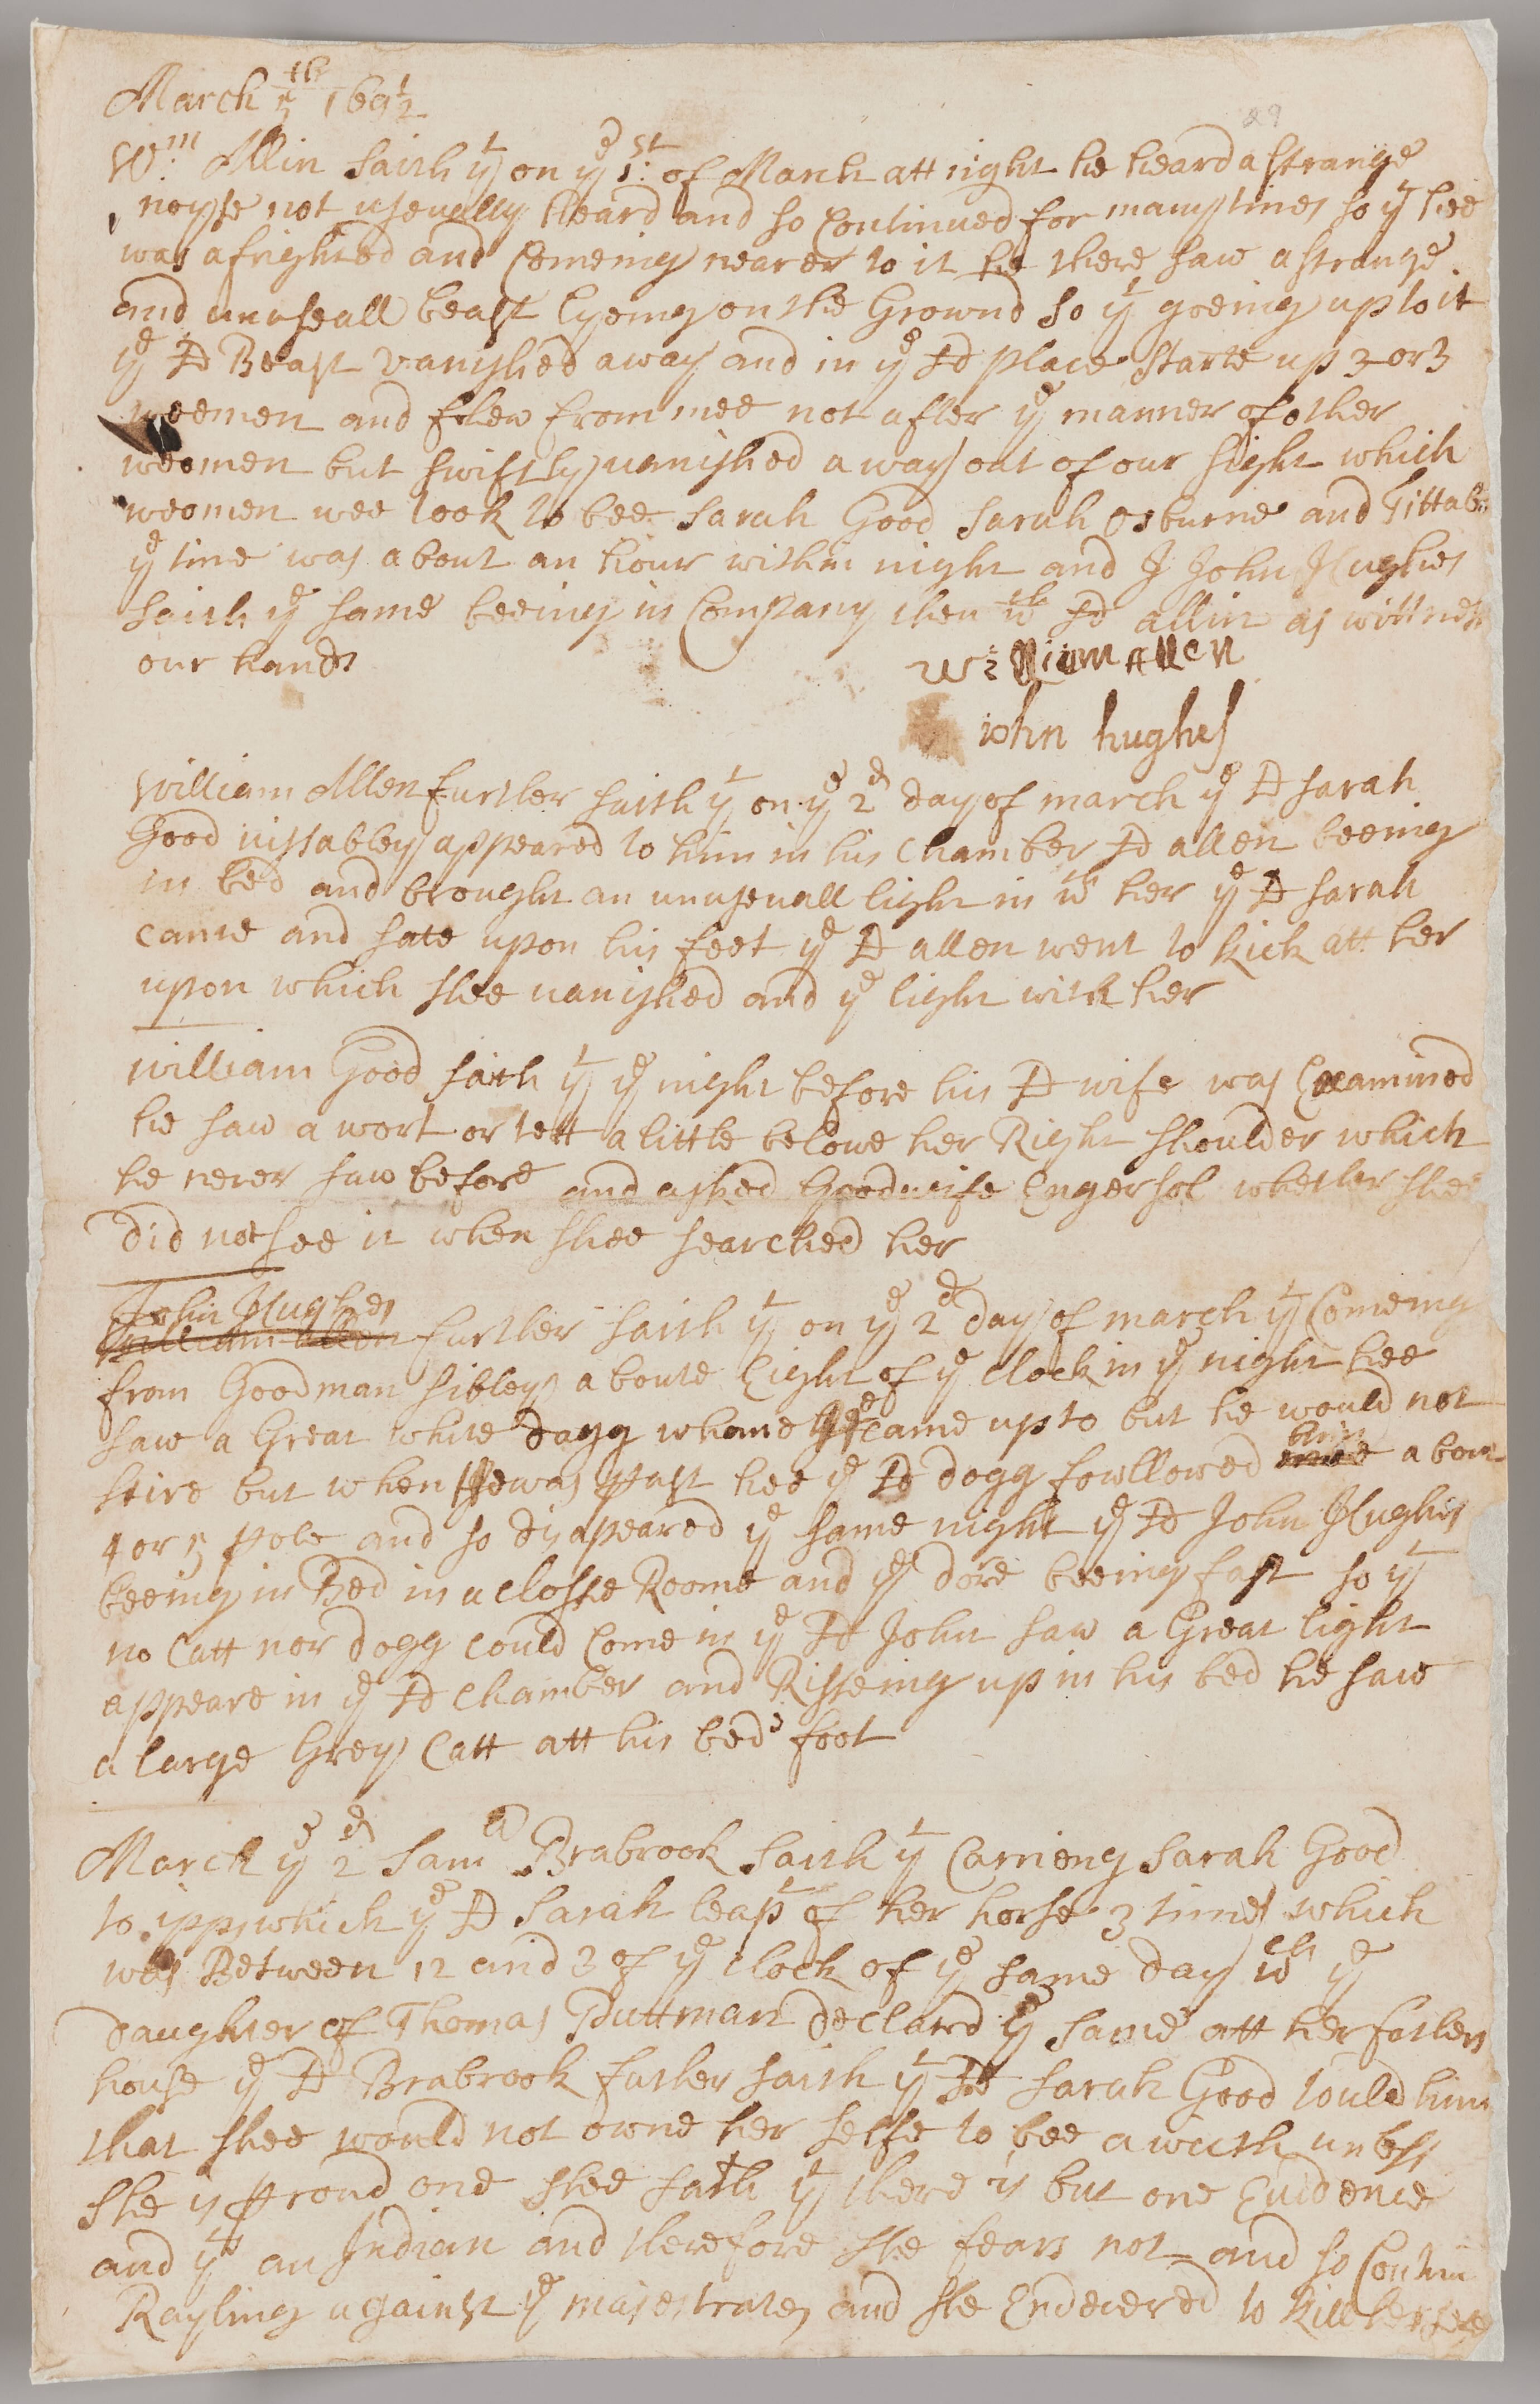 March 5th 169½
29
Wm Allin saith yt on ye 1st of March att night he heard a strange
noyse not useually heard and so continued for many times so yt hee
was afrighted and Comeing nearer to it he there saw a strange
and unuseall beast lyeing on the Grownd so yt goeing up to it
ye sd Beast vanished away and in ye sd place starte up 2 or 3
weemen and fled from mee not after ye manner of other
weomen but swiftly vanished away out of our sight which
weomen wee took to bee Sarah Good Sarah Osburne and Tittabe
ye time was about an hour within night and I John Hughes
saith ye same beeing in Company then wth sd allin as wittness
our hands
William Allen
John hughes
William Allen further saith yt on ye 2d day of march ye sd Sarah
Good vissabley appeared to him in his chamber sd allen beeing
in bed and brought an unuseuall light in wth her ye sd Sarah
came and sate upon his foot ye sd allen went to kick att her
upon which shee vanished and ye light with her
William Good saith yt ye night before his sd wife was Examined
he saw a wart or tett a little belowe her Right shoulder which
he never saw before and asked Goodwife Engersol whether shee
did not see it when shee searched her
John Hughes
William Allen further saith yt on ye 2d day of march yt Comeing
from Goodman Sibleys aboute Eight of ye clock in ye night hee
saw a Great white dogg whome he came up to but he would not
stire but when He was past hee ye sd dogg fowllowed mee him about
4 or 5 pole and so disapeared ye same night ye sd John Hughes
beeing in Bed in a closse Roome and ye dore beeing fast so yt
no Catt nor dogg could Come in ye sd John saw a Great light
appeare in ye sd chamber and Risseing up in his bed he saw
a large Grey Catt att his beds foot
March ye 2d Saml Brabrook saith yt Carrieng Sarah Good
to ippswhich ye sd Sarah leapt of her horse 3 times which
was Between 12 and 3 of ye clock of ye same day wch ye
daughter of Thomas Puttman declared ye same att her fathers
house ye sd Brabrook further saith yt sd Sarah Good tould him
that shee would not owne her selfe to bee a wicth unless
she is proud one shee saith yt there is but one Evidence
and yts an Indian and therefore she fears not and so Continu
Rayling against ye majestrates and she Endevered to kill herselfe